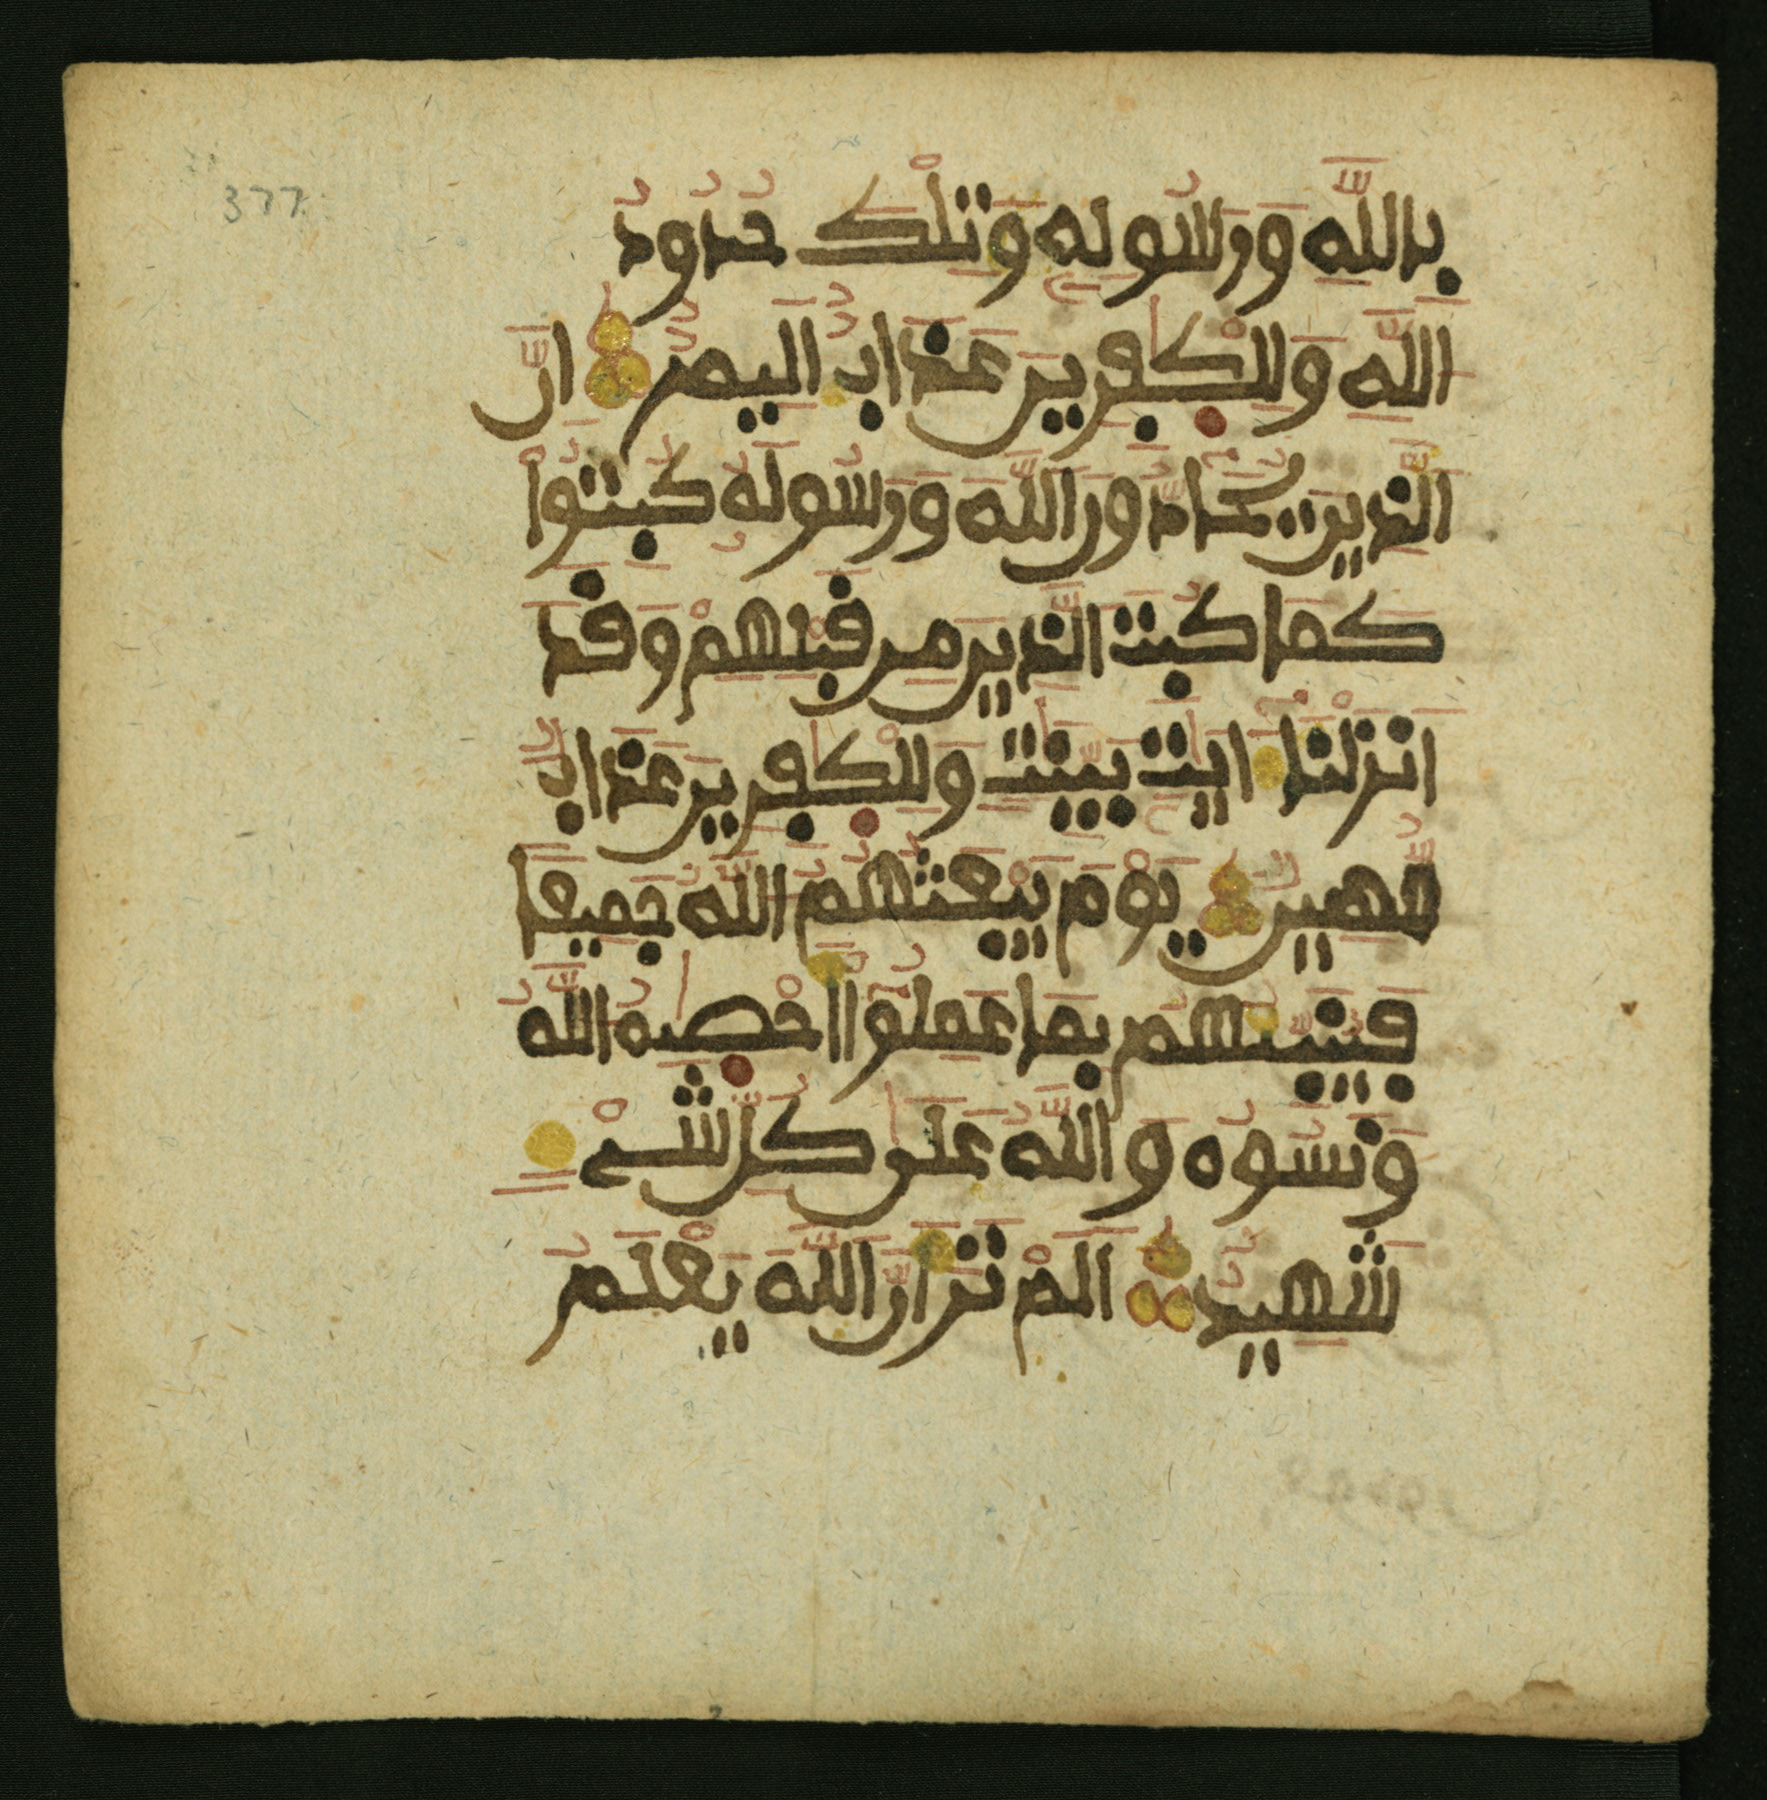 377
بِاللَّهِ وَرَسُولِهِ وَتِلْكَ حُدُودُ
اللَّهِ وَلِلْكٰفِرِينَ عَذَابٌ اَلِيمٌ اِنَّ
الَّذِينَ يُحَادُّونَ اللَّهَ وَرَسُولَهُ كُبِتُوا
كَمَا كُبِتَ الَّذِينَ مِن قَبْلِهِمْ وَقَدَ
اَنزَلْنَا ءَايٰتٍ بَيِّنٰتٍ وَلِلْكٰفِرِينَ عَذَابٌ
مُّهِينٌ يَوْمَ يَبْعَثُهُمُ اللَّهُ جَمِيعاً
فَيُنَبِّئُهُم بِمَا عَمِلُوا اَحْصٰيهُ اللَّهُ
وَنَسُوهُ وَاللَّهُ عَلٰى كُلِّ شَےْءٍ
شَهِيدٌ اَلَمْ تَرَ أَنَّ اللَّهَ يَعْلَمُ